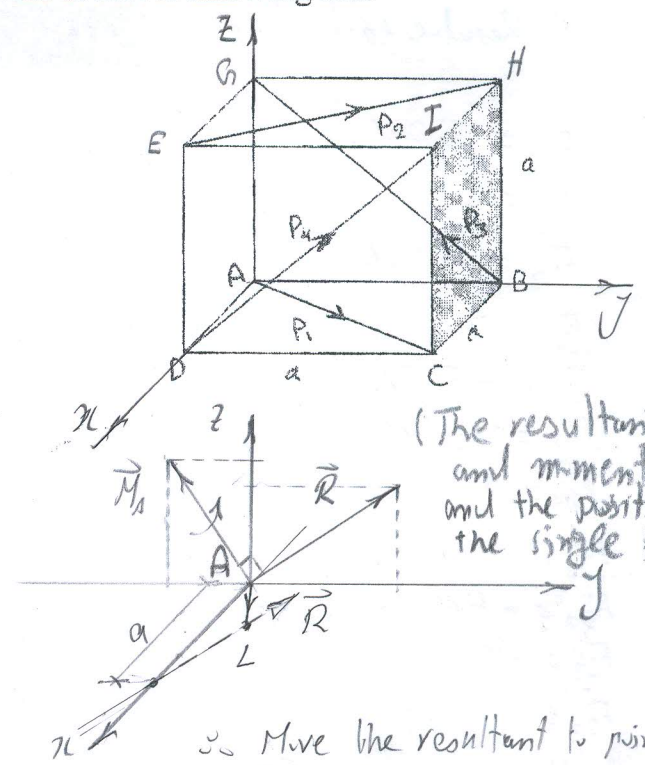 Z
G
H
E
P2
I
a
P4
P3
A
B
y
P1
a
D
a
C
x
Z
(The resultan
M⃗A
R⃗
and moment
and the posit
the single
A
y
a
R⃗
L
x
∴ Move the resultant to poin